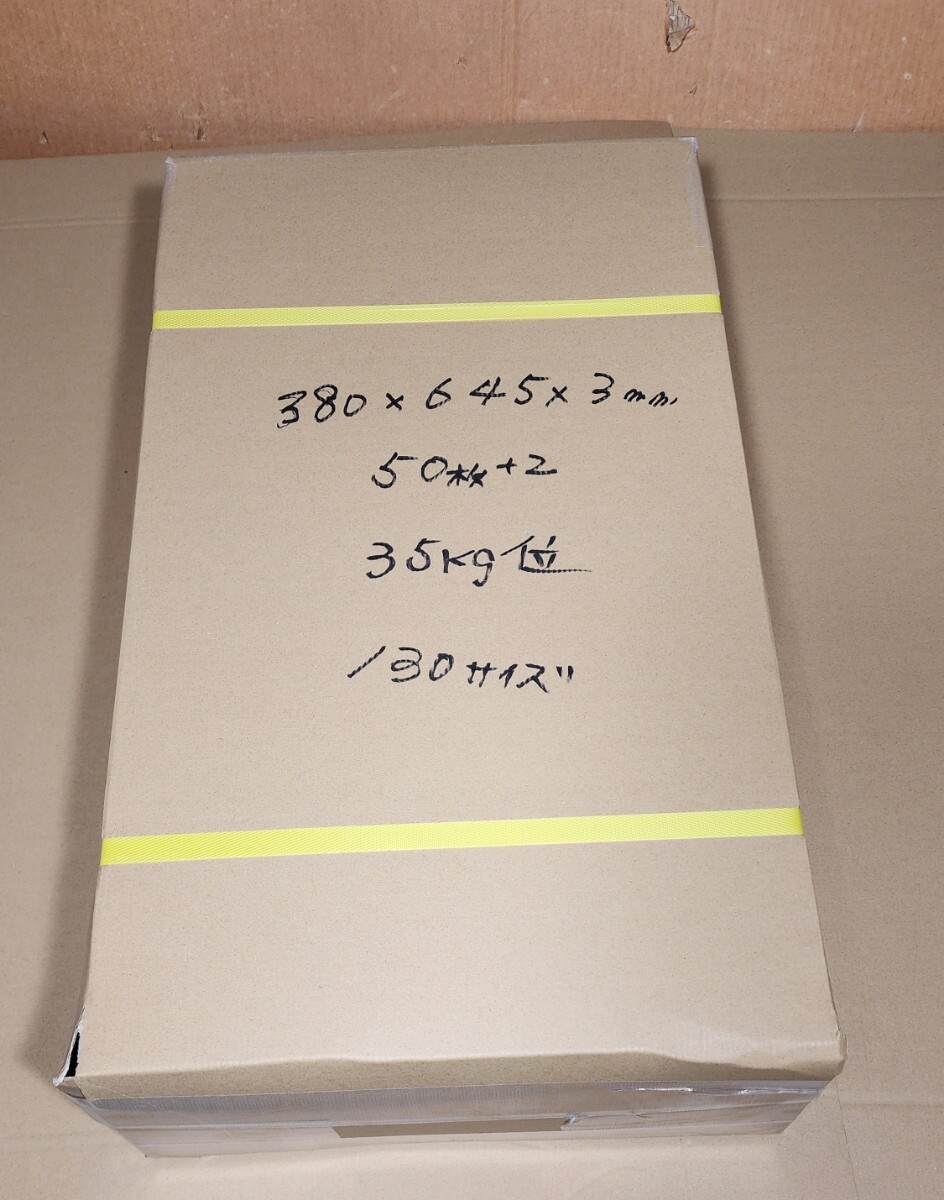 380×645×3mm
50枚+2
35kg位
130サイズ